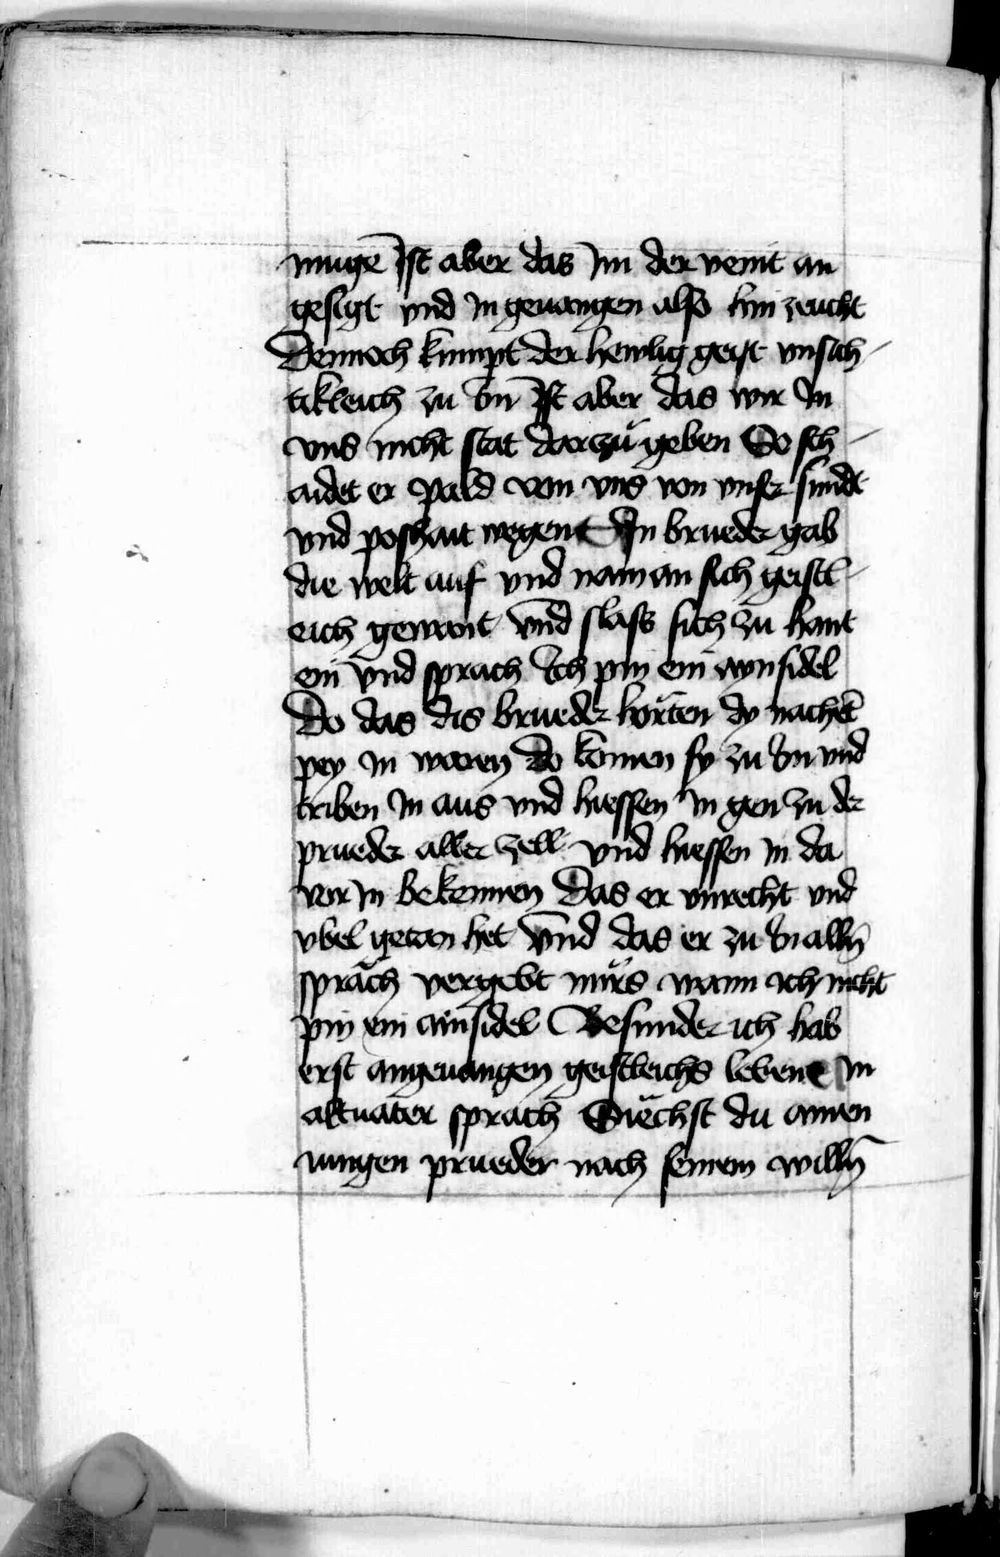 mugē Ist aber das Im der veint an
gesigt vnd In geuangen also hin zeucht
Dennoch kumpt der heylig geist vnsich-
tikleich zu Im Ist aber das wir In
vns nicht stat darzu geben So sch-
aidet er pald von vns von vnser sundt
vnd poshait wegen Ein brueder gab
die welt auf vnd nam an sich geistl-
eich gewant Vnd slass sich zu hant
ein Vnd sprach Ich pin ein aynsidel
Do das dis brueder horten dy nachet
pey in waren Do komen sy zu Im vnd
triben In aus vnd hiessen In gen zu der
prueder aller zell vnd hiessen In da
vor In bekennen Das er vnrecht vnd
vbel getan het Vnd das er zu In allen̄
sprach vergebt mirs wann ich nicht
pin ein ainsidel Besunder ich hab
erst angeuangen geistleichs leben Ein
altuater sprach Siechst du ainen
iungen prueder nach seinem willn̄